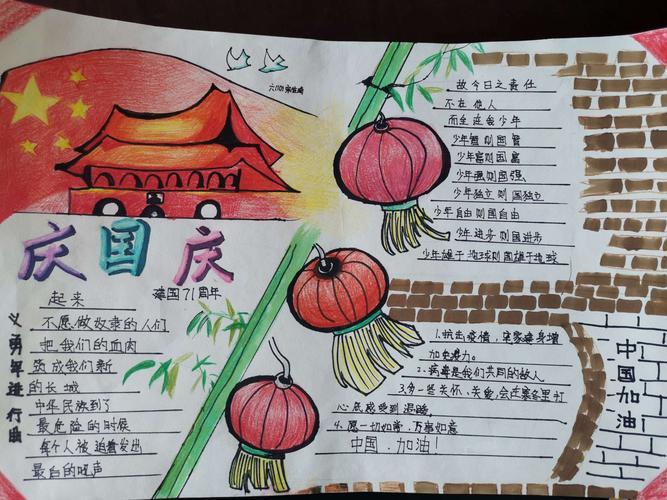 庆国庆
建国71周年
义勇军进行曲
起来
不愿做奴隶的人们
把我们的血肉
筑成我们新
的长城
中华民族到了
最危险的时候
每个人被迫着发出
最后的吼声
故今日之责任
不在他人
而全在我少年
少年智则国智
少年富则国富
少年强则国强
少年独立则国独立
少年自由则国自由
少年进步则国进步
少年雄于地球则国雄于地球
1.抗击疫情,
加免疫力。
2.病毒是我们共同的敌人
3.多一些关怀、关爱,会在寒冬里
心底感受到温暖,
4.愿一切如常,万事如意
中国.加油!
中国加油